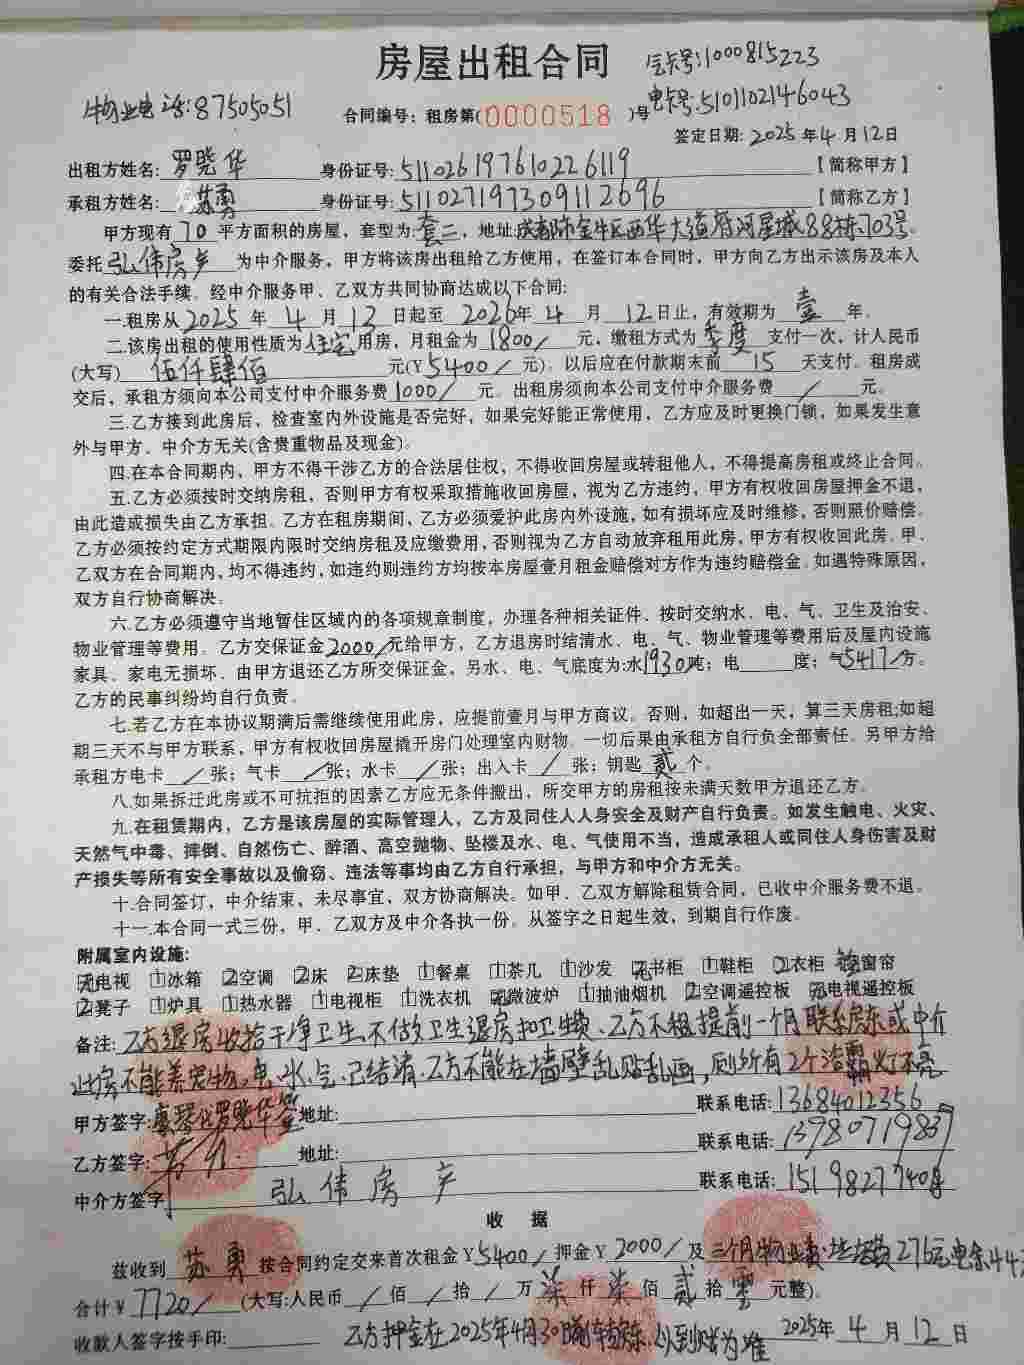 房屋出租合同
气卡号:1000815223
物业电话:87505051
合同编号:租房第(0000518)号
电卡号:5101102146043
签定日期:2025年4月12日
出租方姓名:罗晓华 身份证号:511026197610226119 【简称甲方】
承租方姓名:苏勇 身份证号:511027197309112696 【简称乙方】
甲方现有70平方面积的房屋,套型为套二,地址:成都市金牛区西华大道府河星城88栋703号。
委托弘伟房产为中介服务,甲方将该房出租给乙方使用,在签订本合同时,甲方向乙方出示该房及本人
的有关合法手续。经中介服务甲、乙双方共同协商达成以下合同:
一.租房从2025年4月13日起至2026年4月12日止,有效期为壹年。
二.该房出租的使用性质为住宅用房,月租金为1800/元,缴租方式为季度支付一次,计人民币
(大写)伍仟肆佰元(¥5400/元)。以后应在付款期末前15天支付。租房成
交后,承租方须向本公司支付中介服务费1000/元。出租房须向本公司支付中介服务费/元。
三.乙方接到此房后,检查室内外设施是否完好,如果完好能正常使用,乙方应及时更换门锁,如果发生意
外与甲方、中介方无关(含贵重物品及现金)。
四.在本合同期内,甲方不得干涉乙方的合法居住权,不得收回房屋或转租他人,不得提高房租或终止合同。
五.乙方必须按时交纳房租,否则甲方有权采取措施收回房屋,视为乙方违约,甲方有权收回房屋押金不退,
由此造成损失由乙方承担。乙方在租房期间,乙方必须爱护此房内外设施,如有损坏应及时维修,否则照价赔偿。
乙方必须按约定方式期限内限时交纳房租及应缴费用,否则视为乙方自动放弃租用此房,甲方有权收回此房。甲、
乙双方在合同期内,均不得违约,如违约则违约方均按本房屋壹月租金赔偿对方作为违约赔偿金。如遇特殊原因,
双方自行协商解决。
六.乙方必须遵守当地暂住区域内的各项规章制度,办理各种相关证件、按时交纳水、电、气、卫生及治安、
物业管理等费用。乙方交保证金2000/元给甲方,乙方退房时结清水、电、气、物业管理等费用后及屋内设施
家具、家电无损坏、由甲方退还乙方所交保证金,另水、电、气底度为:水1930吨;电 度;气5417/方。
乙方的民事纠纷均自行负责。
七.若乙方在本协议期满后需继续使用此房,应提前壹月与甲方商议。否则,如超出一天,算三天房租;如超
期三天不与甲方联系,甲方有权收回房屋撬开房门处理室内财物。一切后果由承租方自行负全部责任。另甲方给
承租方电卡/张;气卡/张;水卡/张;出入卡/张;钥匙贰个。
八.如果拆迁此房或不可抗拒的因素乙方应无条件搬出,所交甲方的房租按未满天数甲方退还乙方。
九.在租赁期内,乙方是该房屋的实际管理人,乙方及同住人人身安全及财产自行负责。如发生触电、火灾、
天然气中毒、摔倒、自然伤亡、醉酒、高空抛物、坠楼及水、电、气使用不当,造成承租人或同住人身伤害及财
产损失等所有安全事故以及偷窃、违法等事均由乙方自行承担,与甲方和中介方无关。
十.合同签订,中介结束,未尽事宜,双方协商解决。如甲、乙双方解除租赁合同,已收中介服务费不退。
十一.本合同一式三份,甲、乙双方及中介各执一份。从签字之日起生效,到期自行作废。
附属室内设施:
无电视 1冰箱 2空调 2床 2床垫 1餐桌 1茶几 1沙发 无书柜 1鞋柜 2衣柜 窗帘
2凳子 1炉具 1热水器 1电视柜 1洗衣机 无微波炉 1抽油烟机 2空调遥控板 无电视遥控板
备注:乙方退房收拾干净卫生、不做卫生退房扣卫生费、乙方不租提前一个月联系房东或中介
此房不能养宠物,电、水、气、已结清、乙方不能在墙壁乱贴乱画,厕所有2个浴霸灯不亮
甲方签字:罗晓华 地址: 联系电话:13684012356
乙方签字: 地址: 联系电话:13980719837
中介方签字 弘伟房产 联系电话:1519827740
收 据
兹收到苏勇按合同约定交来首次租金¥5400/押金¥2000/及三个月物业费、垃圾费276元,电余44
合计¥7720/(大写:人民币/佰/拾/万柒仟柒佰贰拾零元整)。
收款人签字按手印: 乙方押金在2025年4月30日前转房东、以到账为准 2025年4月12日